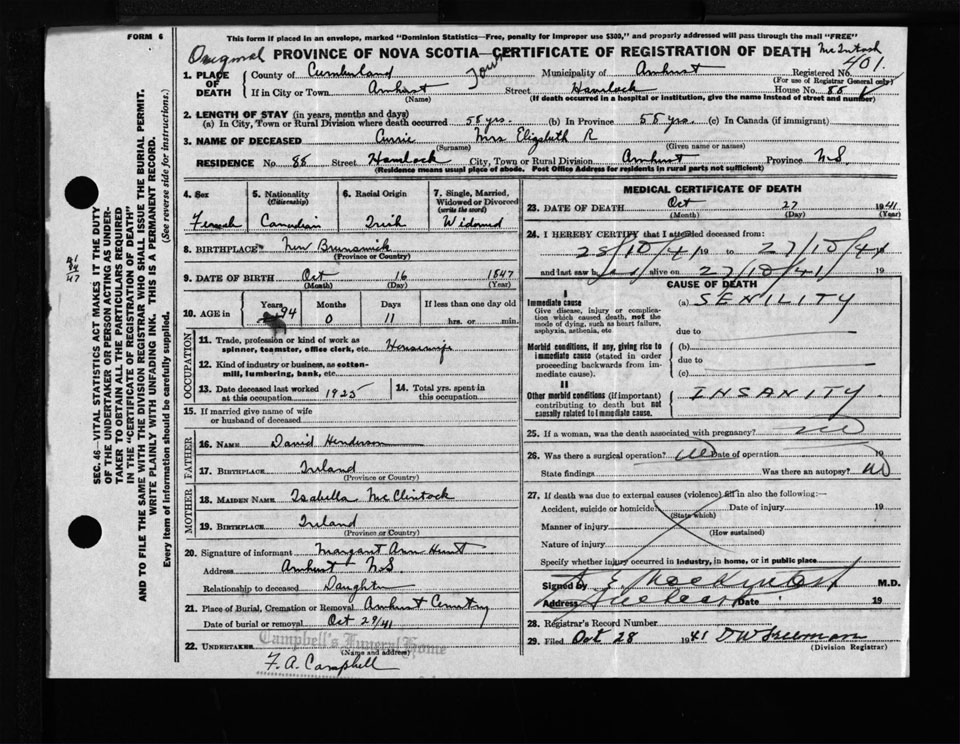 FORM 6
This form if placed in an envelope, marked "Dominion Statistics—Free, penalty for improper use $300," and properly addressed will pass through the mail "FREE"
Original PROVINCE OF NOVA SCOTIA—CERTIFICATE OF REGISTRATION OF DEATH McIntosh
401.
1. PLACE OF DEATH County of Cumberland Town Municipality of Amherst Registered No.
(For use of Registrar General only)
If in City or Town Amherst Street Havelock House No. 88
(Name) (If death occurred in a hospital or institution, give the name instead of street and number)
2. LENGTH OF STAY (in years, months and days)
(a) In City, Town or Rural Division where death occurred 58 yrs. (b) In Province 58 yrs. (c) In Canada (if immigrant)
3. NAME OF DECEASED Currie Mrs Elizabeth R
(Surname) (Given name or names)
RESIDENCE No. 88 Street Havelock City, Town or Rural Division Amherst Province N.S
(Residence means usual place of abode. Post Office Address for residents in rural parts not sufficient)
4. Sex
Female
5. Nationality
(Citizenship)
Canadian
6. Racial Origin
Irish
7. Single, Married, Widowed or Divorced
(write the word)
Widowed
8. BIRTHPLACE New Brunswick
(Province or Country)
9. DATE OF BIRTH Oct 16 1847
(Month) (Day) (Year)
10. AGE in Years Months Days If less than one day old
94 0 11 hrs. or min.
OCCUPATION
11. Trade, profession or kind of work as
spinner, teamster, office clerk, etc. Housewife
12. Kind of industry or business, as cotton-
mill, lumbering, bank, etc.
13. Date deceased last worked
at this occupation 1925
14. Total yrs. spent in
this occupation
15. If married give name of wife
or husband of deceased
FATHER
16. NAME David Henderson
17. BIRTHPLACE Ireland
(Province or Country)
MOTHER
18. MAIDEN NAME Isabella McClintock
19. BIRTHPLACE Ireland
(Province or Country)
20. Signature of informant Margaret Ann Hunt
Address Amherst N.S
Relationship to deceased Daughter
21. Place of Burial, Cremation or Removal Amherst Cemetry
Date of burial or removal Oct 29/41
22. UNDERTAKER Campbell's Funeral Home
(Name and address)
F. A. Campbell
MEDICAL CERTIFICATE OF DEATH
23. DATE OF DEATH Oct 27 1941
(Month) (Day) (Year)
24. I HEREBY CERTIFY that I attended deceased from:
25/10/41 19 to 27/10/41
and last saw h alive on 27/10/41 19
CAUSE OF DEATH
I
Immediate cause (a) SENILITY
Give disease, injury or complica-
tion which caused death, not the
mode of dying, such as heart failure,
asphyxia, asthenia, etc
due to
Morbid conditions, if any, giving rise to
immediate cause (stated in order
proceeding backwards from im-
mediate cause).
(b)
due to
(c)
II
Other morbid conditions (if important)
contributing to death but not
causally related to immediate cause.
INSANITY
25. If a woman, was the death associated with pregnancy? no
26. Was there a surgical operation? No Date of operation 19
State findings Was there an autopsy? no
27. If death was due to external causes (violence) fill in also the following:—
Accident, suicide or homicide Date of injury 19
(State which)
Manner of injury
(How sustained)
Nature of injury
Specify whether injury occurred in industry, in home, or in public place
Signed by M.D.
Address Date 19
28. Registrar's Record Number
29. Filed Oct 28 1941 DW Freeman
(Division Registrar)
SEC. 46—VITAL STATISTICS ACT MAKES IT THE DUTY
OF THE UNDERTAKER OR PERSON ACTING AS UNDER-
TAKER TO OBTAIN ALL THE PARTICULARS REQUIRED
IN THE "CERTIFICATE OF REGISTRATION OF DEATH"
AND TO FILE THE SAME WITH THE DIVISION REGISTRAR WHO SHALL ISSUE THE BURIAL PERMIT.
WRITE PLAINLY WITH UNFADING INK. THIS IS A PERMANENT RECORD.
Every item of information should be carefully supplied. (See reverse side for instructions.)
41
94
47